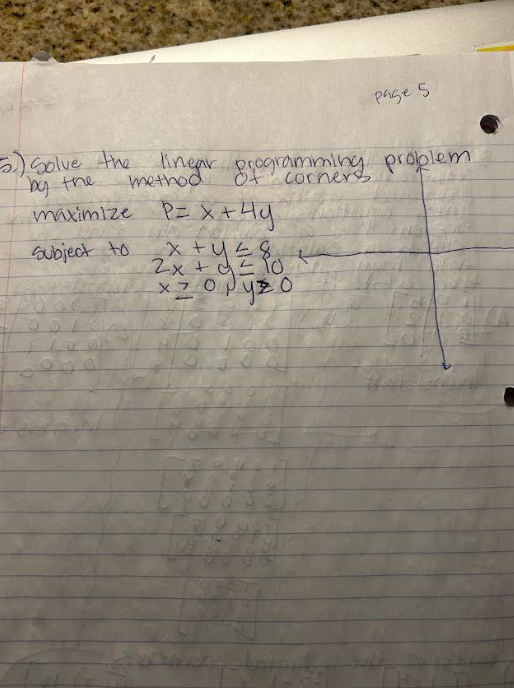 page 5
5.) Solve the linear programming problem
by the method of corners
maximize P = x + 4y
subject to x + y ≤ 8
2x + y ≤ 10
x ≥ 0, y ≥ 0